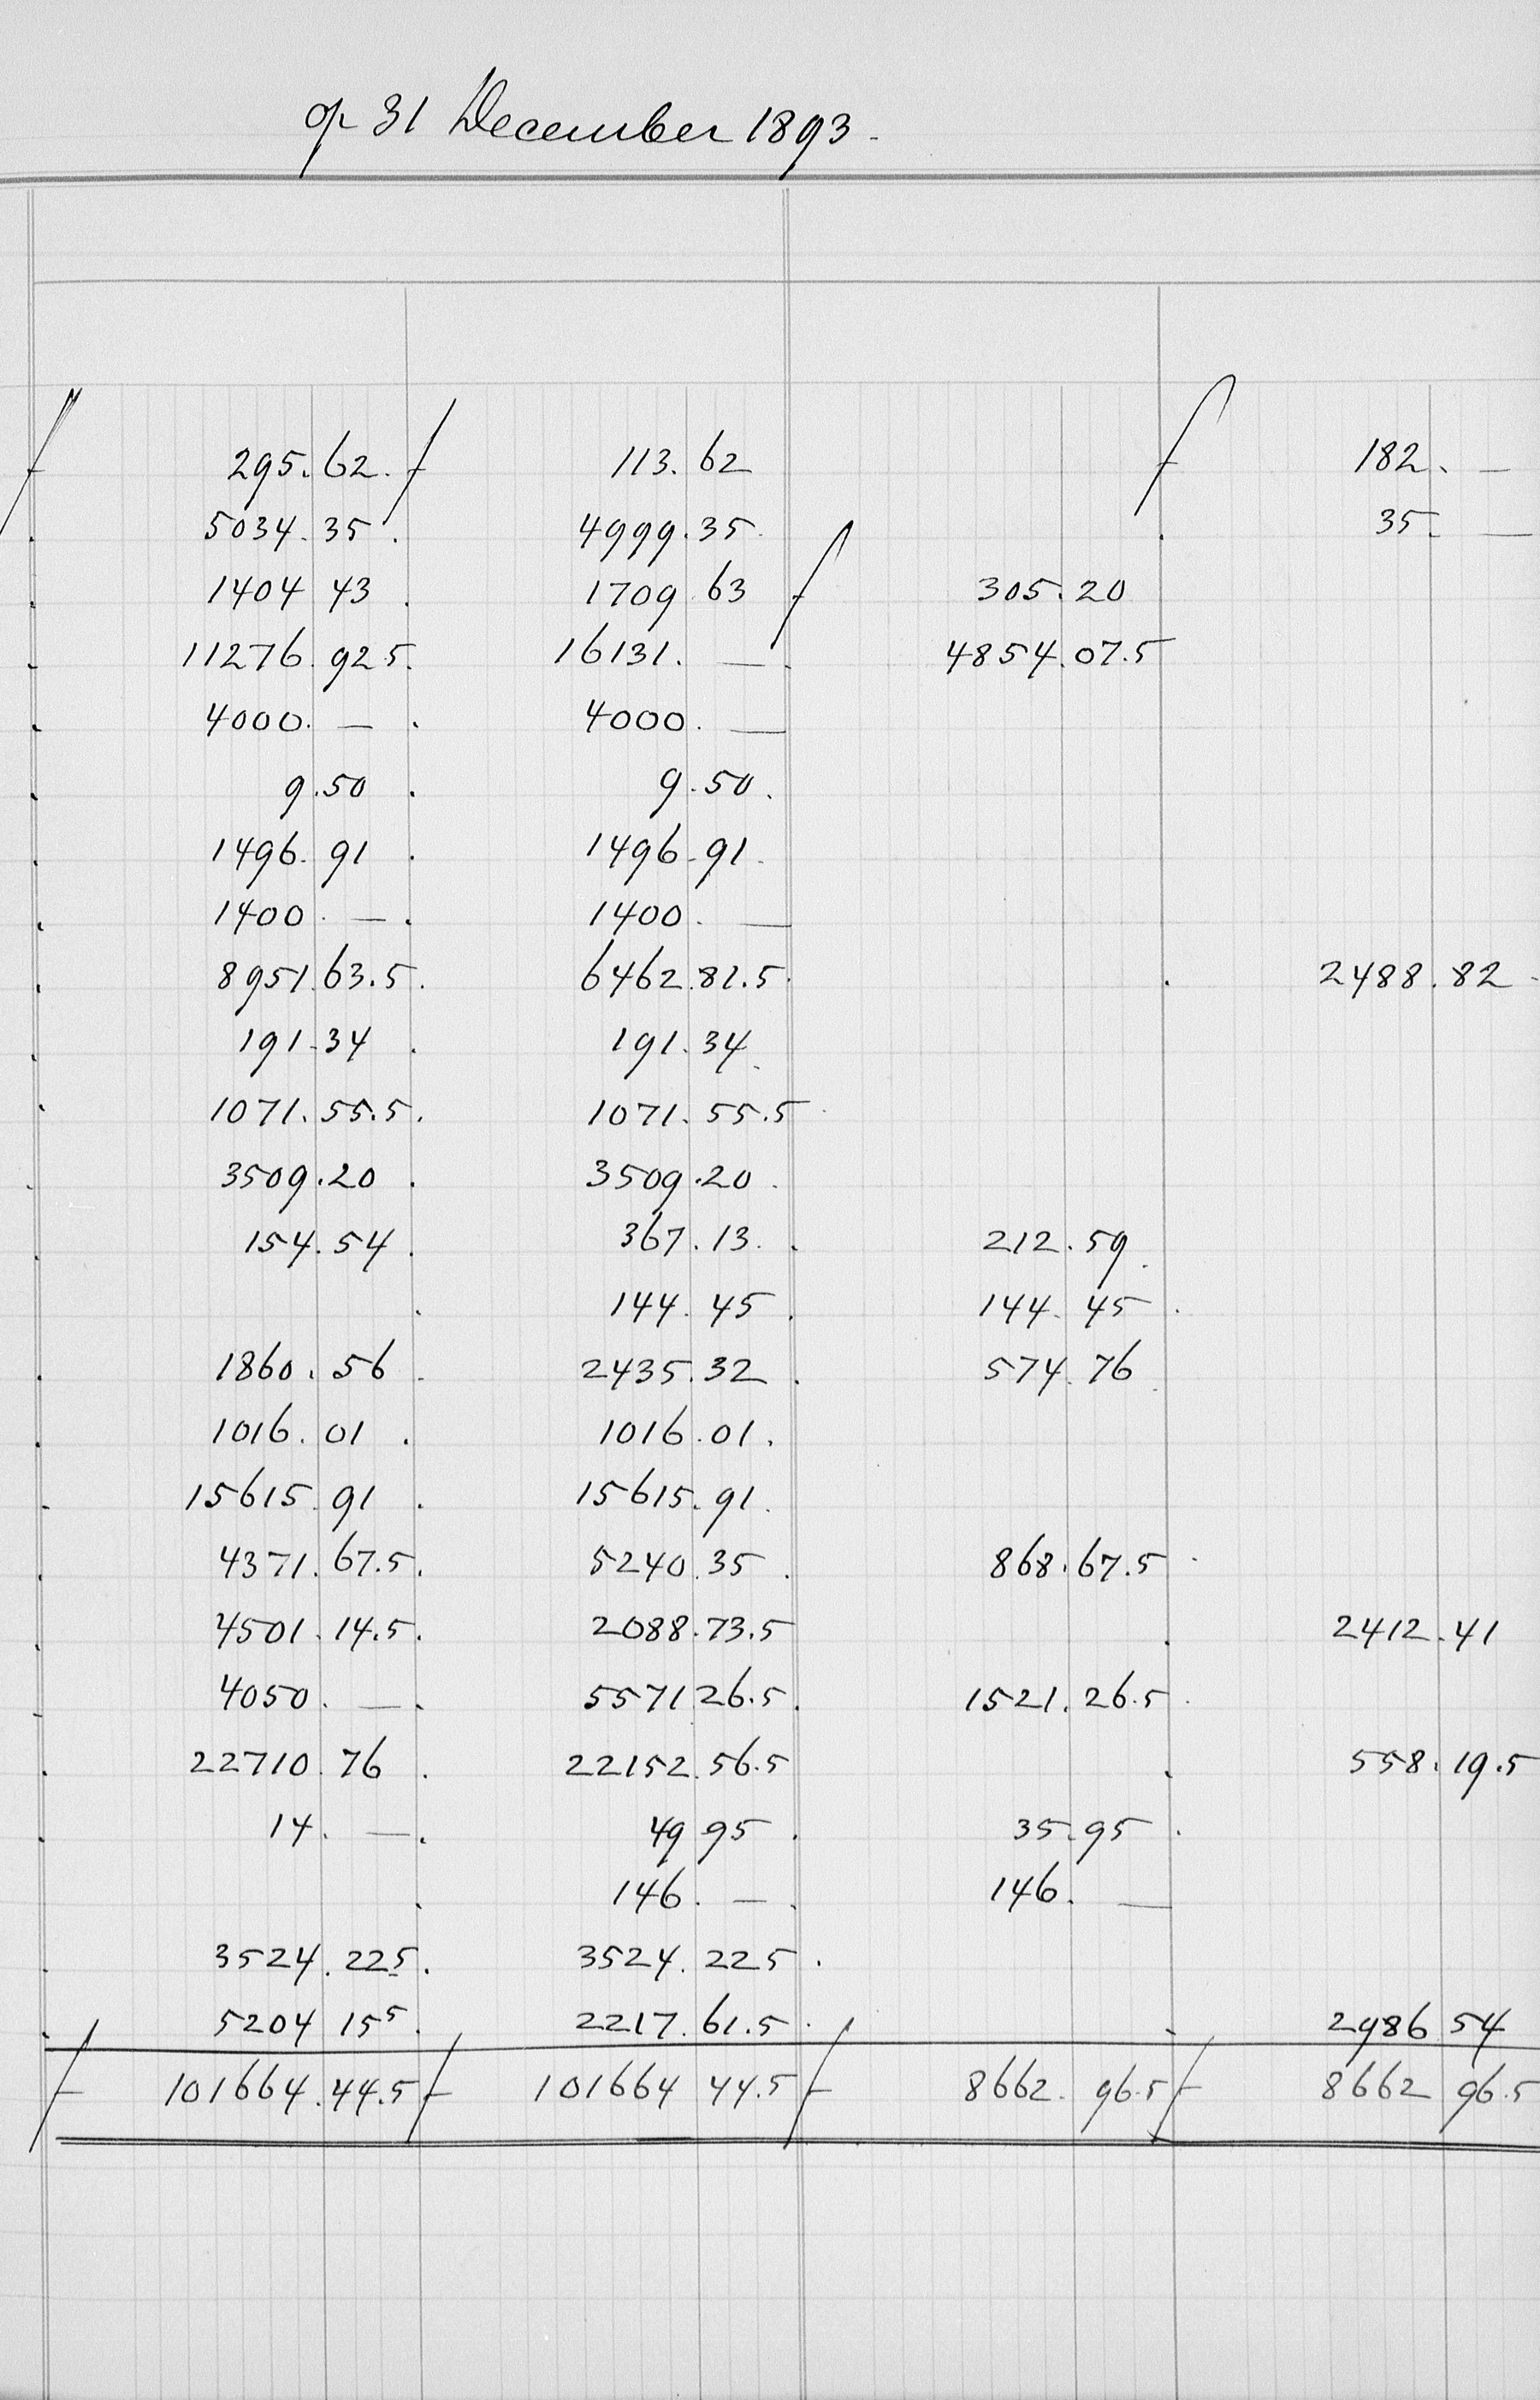 op 31 December 1893.
ƒ 295.62. ƒ 113.62 ƒ 182. —
5034.35. 4999.35. 35. —
1404 43 . 1709 63 ƒ 305.20
11276.925. 16131. — . 4854.07.5
4000. — . 4000. —
9.50 . 9.50.
1496.91 . 1496.91.
1400. — . 1400. —
8951.63.5. 6462.81.5. 2488.82
191.34 . 191.34.
1071.55.5. 1071.55.5
3509.20 . 3509.20.
154.54. 367.13. . 212.59.
144.45 . 144.45 .
1860.56 . 2435.32 . 574.76.
1016.01 . 1016.01.
15615.91 . 15615.91.
4371.67.5. 5240.35 . 868.67.5
4501.14.5. 2088.73.5 2412.41
4050. — . 5571 26.5. 1521.26.5
22710.76 . 22152.56.5 558.19.5
14. — . 49 95 . 35.95 .
146. — . 146. —
3524.225. 3524.225 .
5204 15⁵. 2217.61.5. 2986 54
ƒ 101664.44.5 ƒ 101664 44.5 ƒ 8662.96.5 ƒ 8662 96.5